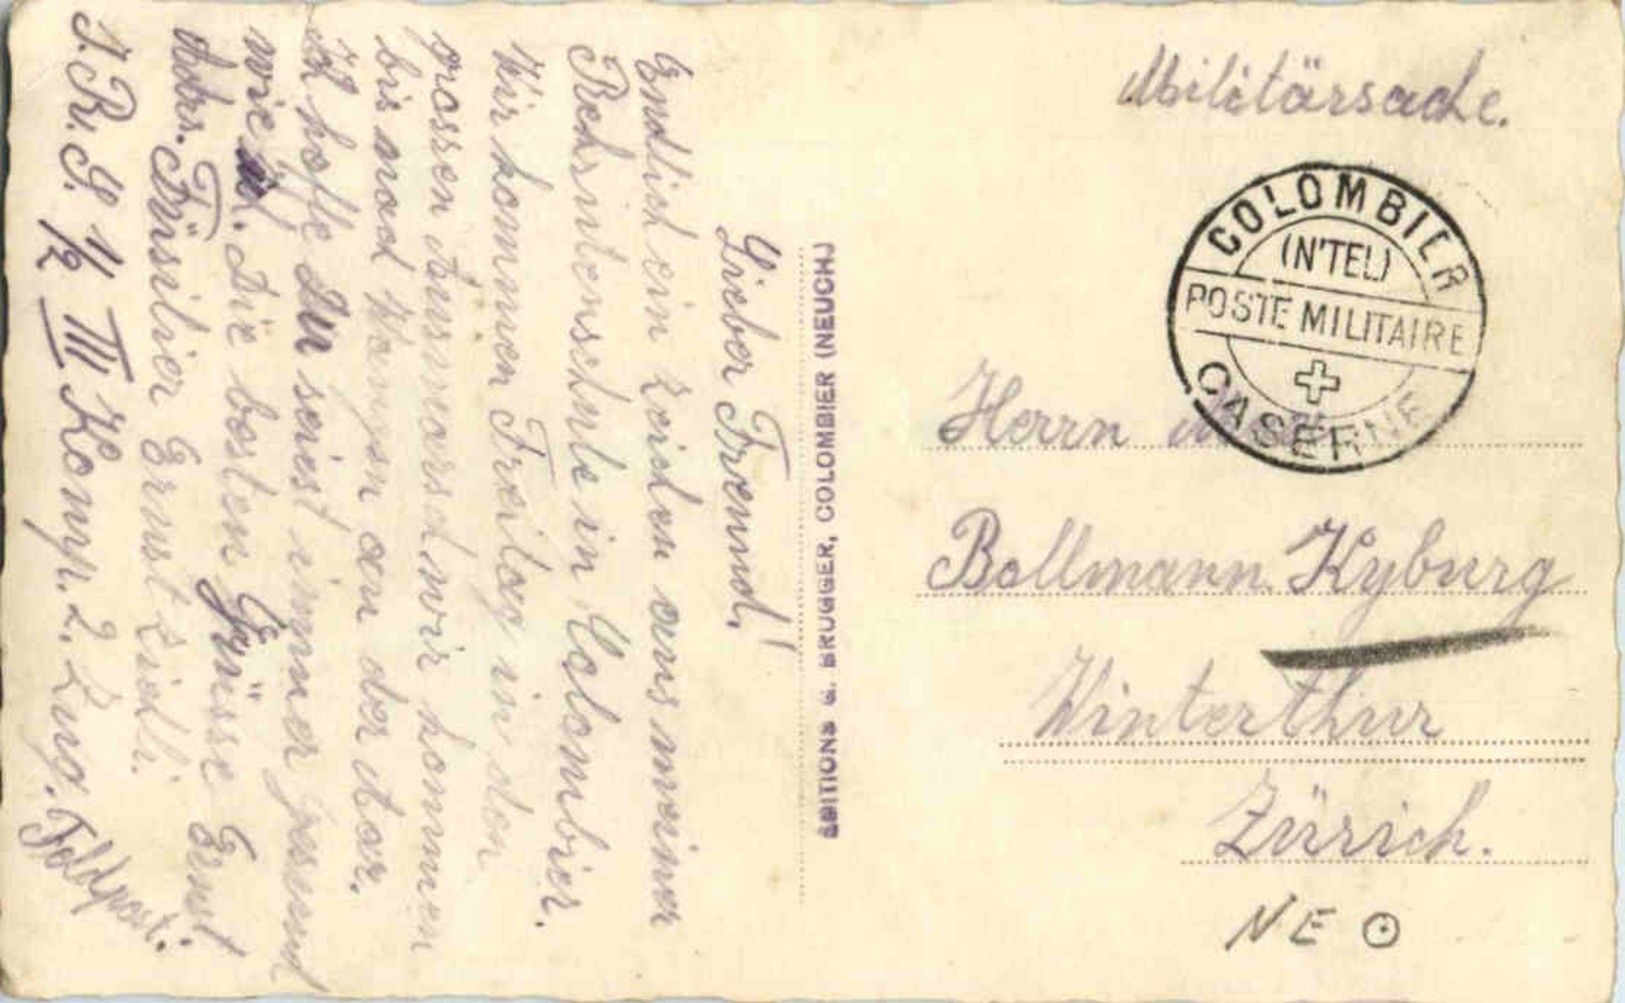 Militärsache.
COLOMBIER
(N'TEL)
POSTE MILITAIRE
CASERNE
Herrn
Bollmann. Kyburg
Winterthur
Zürich.
NE
ÉDITIONS G. BRUGGER, COLOMBIER (NEUCH)
Lieber Freund!
Endlich ein Zeichen aus meiner
Rekrutenschule in Colombier.
Wir kommen Freitag in den
grossen Ausmarsch wir kommen
bis nach an der Aar.
Ich hoffe Du seiest immer gesund
wie ich. Die besten Grüsse Ernst
Adrs. Füsilier Ernst Zidli.
I.R.S. 1/2 III Komp. 2. Zug. Feldpost.